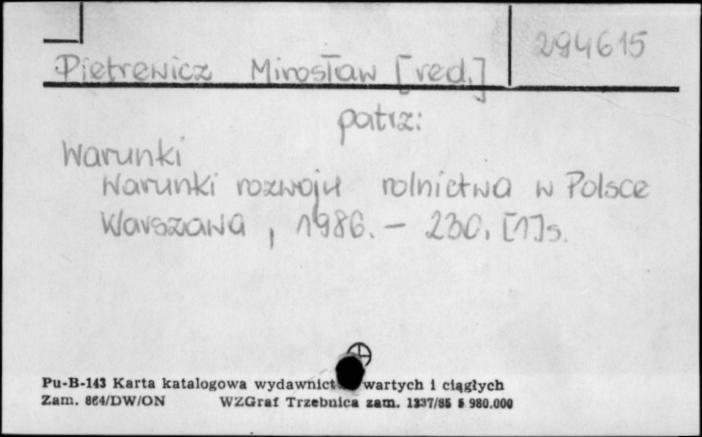 294615
Pietrewicz Mirosław [red.]
patrz:
Warunki
Warunki rozwoju rolnictwa w Polsce
Warszawa, 1986. - 230, [1] s.
Pu-B-143 Karta katalogowa wydawnict wartych i ciągłych
Zam. 864/DW/ON WZGraf Trzebnica zam. 1337/85 5 980.000